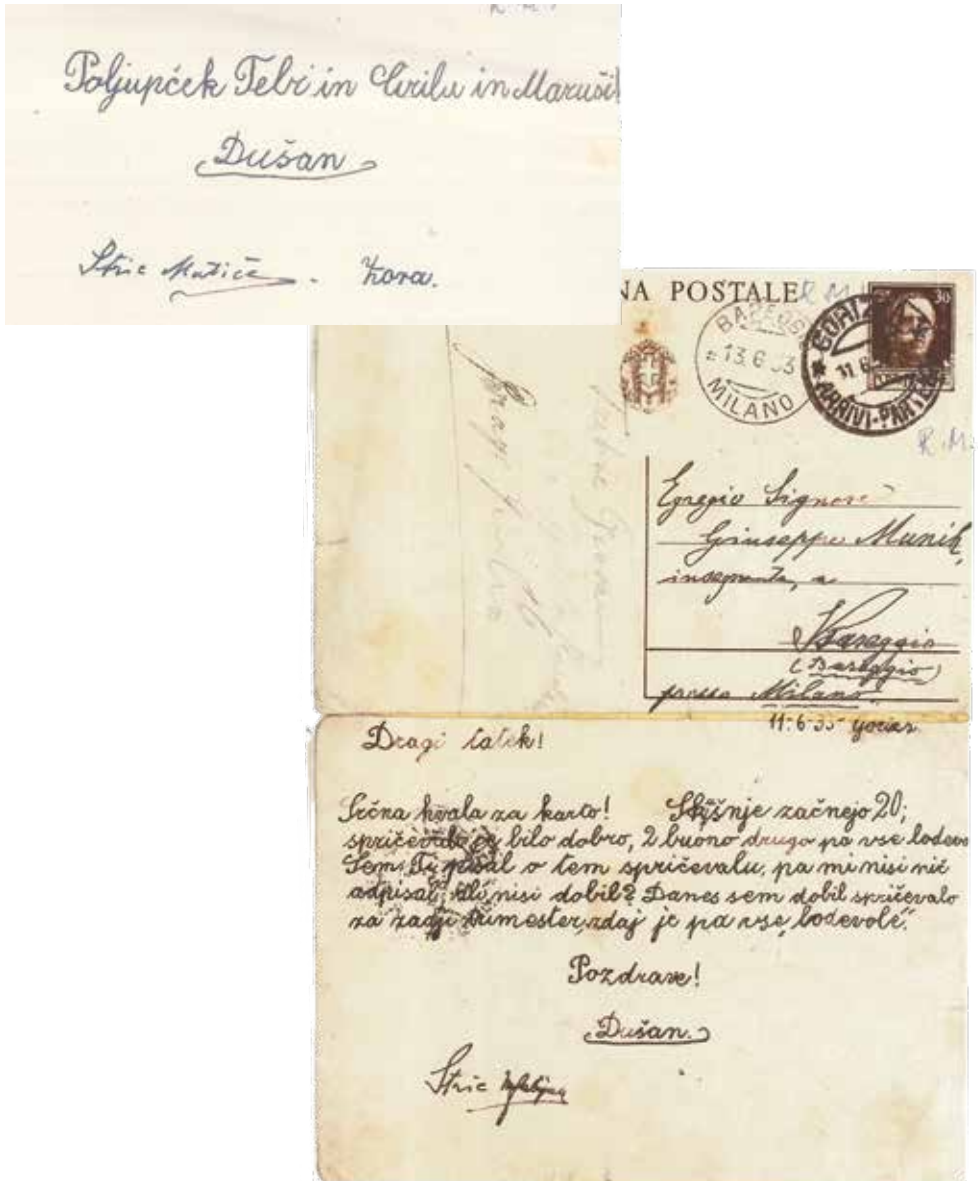 R. M.
Poljupček Tebi in Cirilu in Maruši
Dušan
Stric Matiče. Zora.
NA POSTALE R. M.
30
BAREGGIO
13.6 33
MILANO
GORIZ
11.6
ARRIVI-PARTENZ
R. M.
Egregio Signore
Giuseppe Munih,
insegnante, a
Bareggio
(Bareggio)
presso Milano!
11·6·35 Gorizia
Dragi tatek!
Srčna hvala za karto! Skušnje začnejo 20;
spričevalo je bilo dobro, 2 buono drugo pa vse lodevo
Sem Ti pisal o tem spričevalu, pa mi nisi nič
odpisal; ali nisi dobil? Danes sem dobil spričevalo
za zadnji trimester, zdaj je pa vse „lodevole".
Pozdrave!
Dušan.
Stric